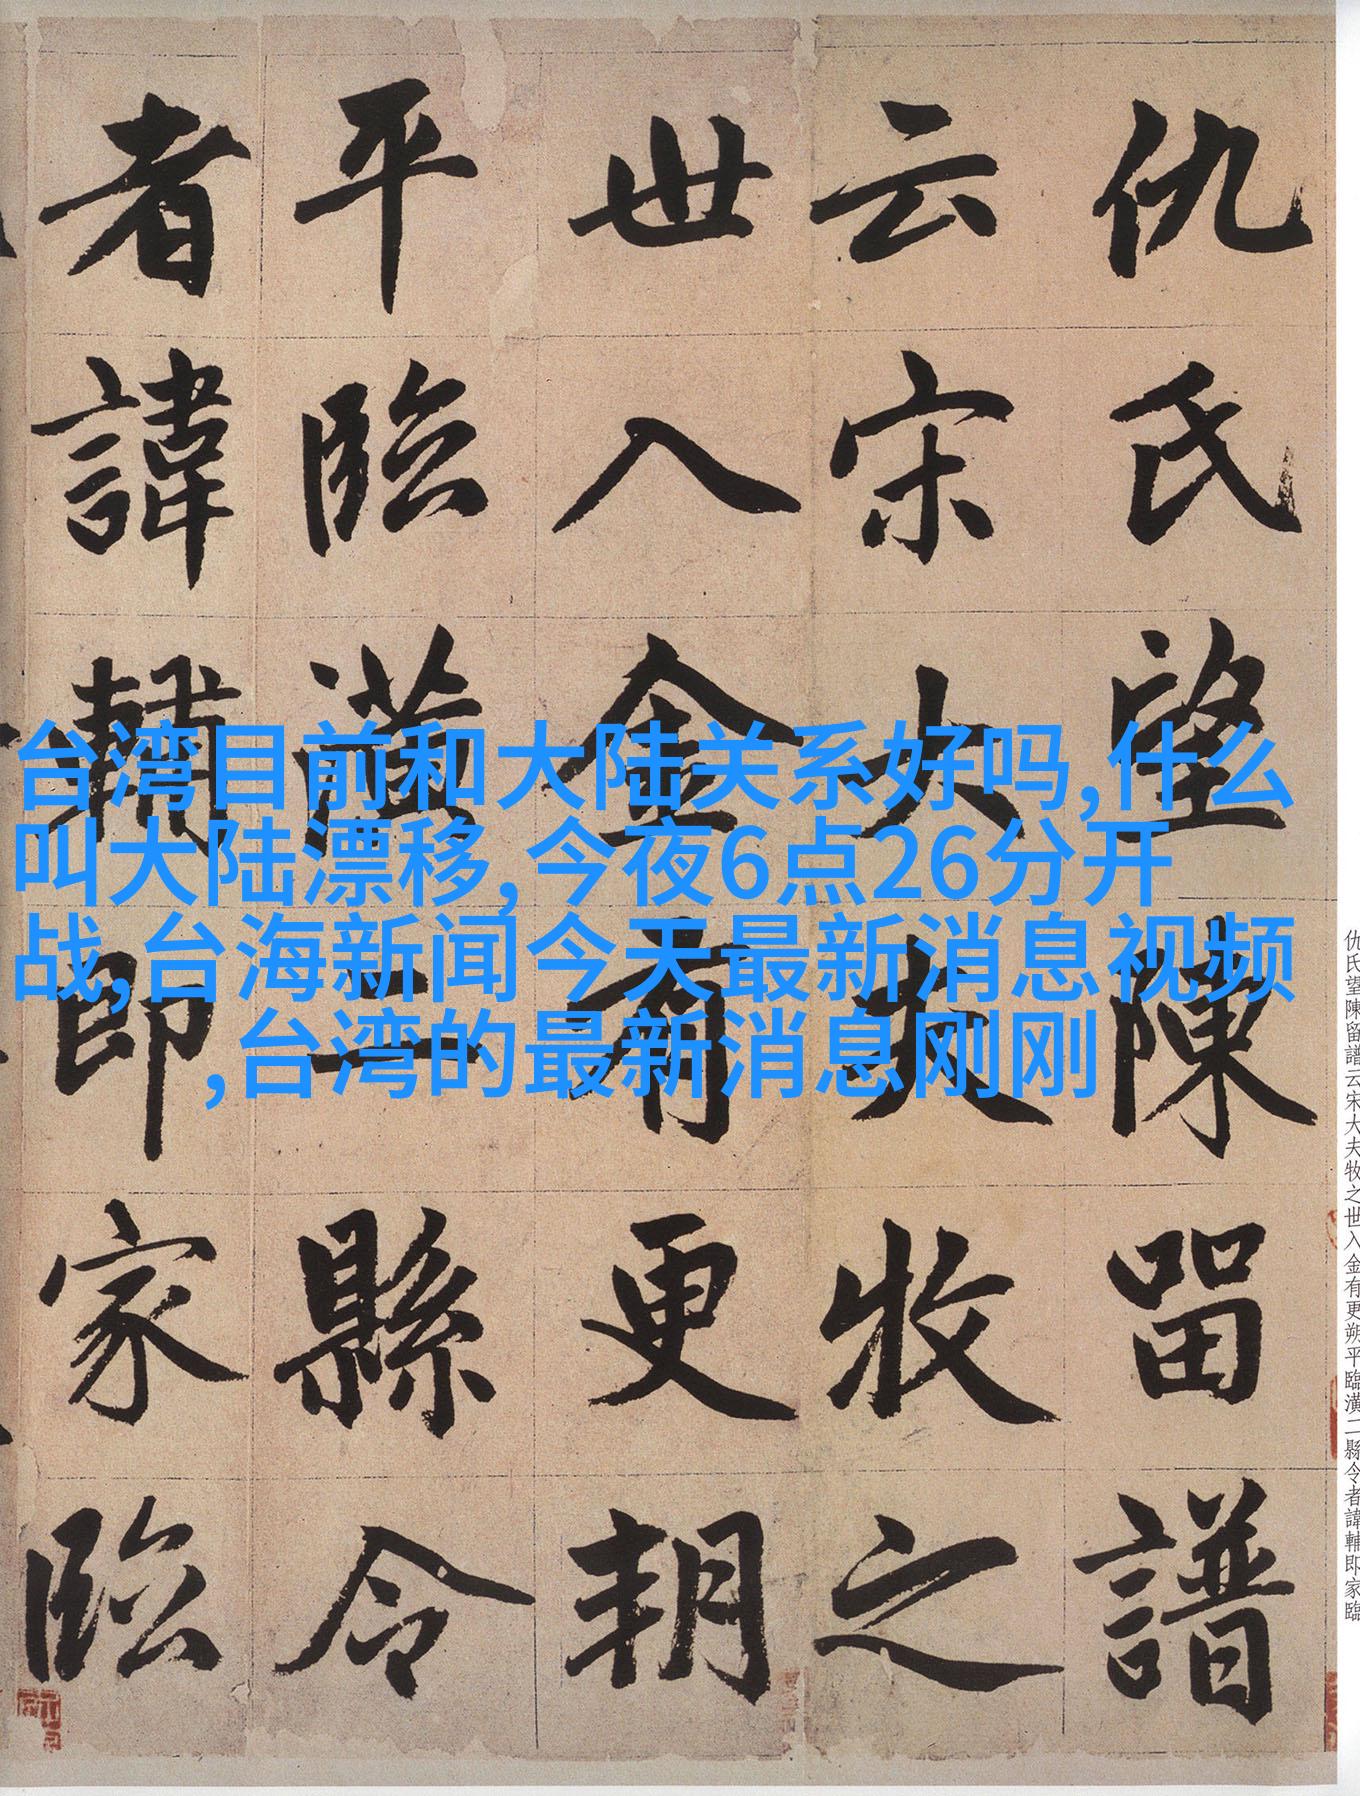 仇氏望陳留譜
云宋大夫牧之
世入金有更朔
平臨潢二縣令
者諱輔即家臨
台湾目前和大陆关系好吗,什么
叫大陆漂移,今夜6点26分开
战,台海新闻今天最新消息视频
,台湾的最新消息刚刚
仇氏望陳留譜云宋大夫牧之世入金有更朔平臨潢二縣令者諱輔即家臨